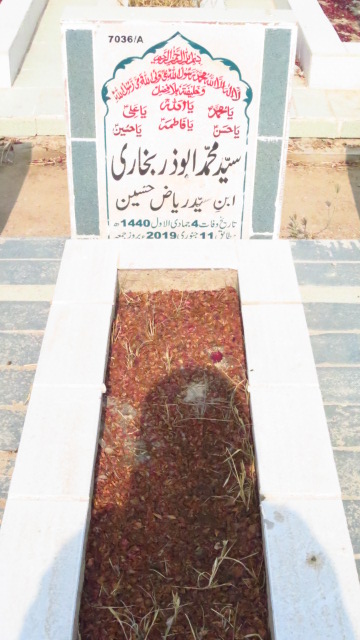 7036/A
بسم اللہ الرحمن الرحیم
لا الہ الا اللہ محمد رسول اللہ علی ولی اللہ وصی رسول اللہ
وخلیفتہ بلا فصل
یا محمدؐ یا اللہ یا علیؑ
یا حسنؑ یا فاطمہؑ یا حسینؑ
سید محمد ابوذر بخاری
ابن سید ریاض حسین
تاریخ وفات 4 جمادی الاول 1440ھ
مطابق 11 جنوری 2019ء بروز جمعہ